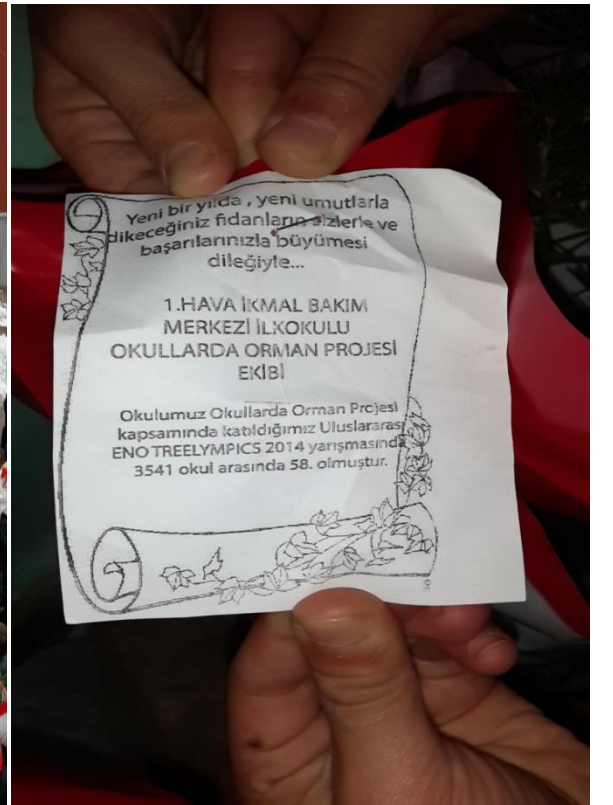 Yeni bir yılda , yeni umutlarla
dikeceğiniz fidanların sizlerle ve
başarılarınızla büyümesi
dileğiyle...
1.HAVA İKMAL BAKIM
MERKEZİ İLKOKULU
OKULLARDA ORMAN PROJESİ
EKİBİ
Okulumuz Okullarda Orman Projesi
kapsamında katıldığımız Uluslararası
ENO TREELYMPICS 2014 yarışmasında
3541 okul arasında 58. olmuştur.